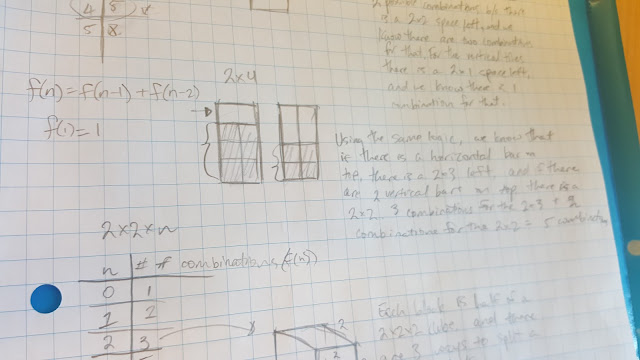 4 5
5 8
combinations b/c there
is a 2x2 space left, and we
know there are two combinations
for that. for the vertical tiles
there is a 2x1 space left,
and we know there is 1
combination for that.
2x4
f(n) = f(n-1) + f(n-2)
f(1) = 1
Using the same logic, we know that
if there is a horizontal bar on
top, there is a 2x3 left, and if there
are 2 vertical bars on top there is a
2x2. 3 combinations for the 2x3 + 2
combinations for the 2x2 = 5 combinations
2x2xn
n # of combinations (f(n))
0 1
1 2
2 3
2
2
Each block is half of a
2x2x2 cube, and there
are 3 ways to split a